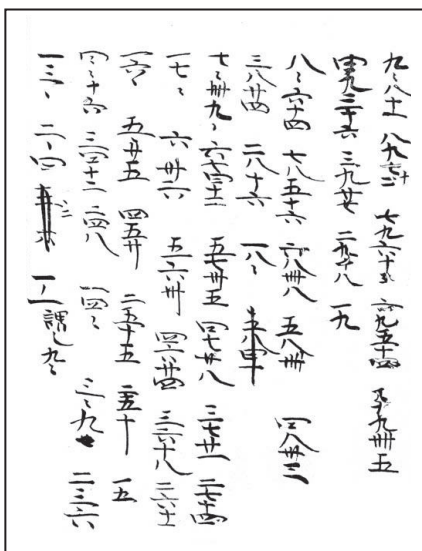 九〻八十一 八九七十二 七九六十三 六九五十四 五九卌五
四九三十六 三九廿七 二九十八 一九
八〻六十四 七八五十六 六八卌八 五八卌 四八卅二
三八廿四 二八十六 一八〻
七〻卌九〻 六七四十二 五七卅五 四七廿八 三七廿一 二七十四
一七〻 六〻卅六 五六卅 四六廿四 三六十八 二六十二
一六〻 五〻廿五 四五廿 三五十五 二五十 一五
四〻十六 三四十二 二四八 一四〻 三〻九 二三六
一三〻 二〻四 一〻一 謂之九〻